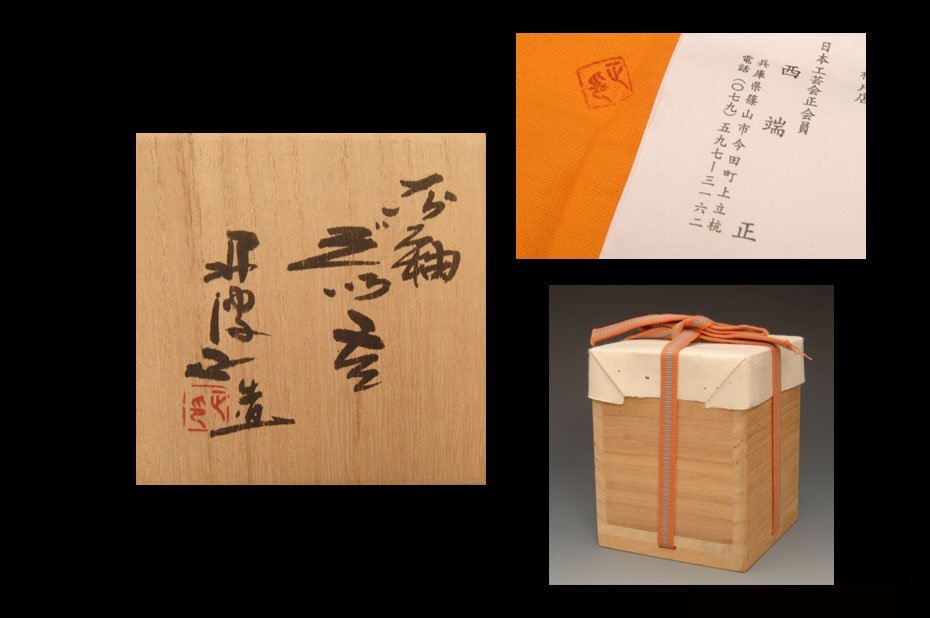 灰釉
ぐい呑
丹波 正造
日本工芸会正会員
西端 正
兵庫県篠山市今田町上立杭
電話(〇七九)五九七ー三一六二